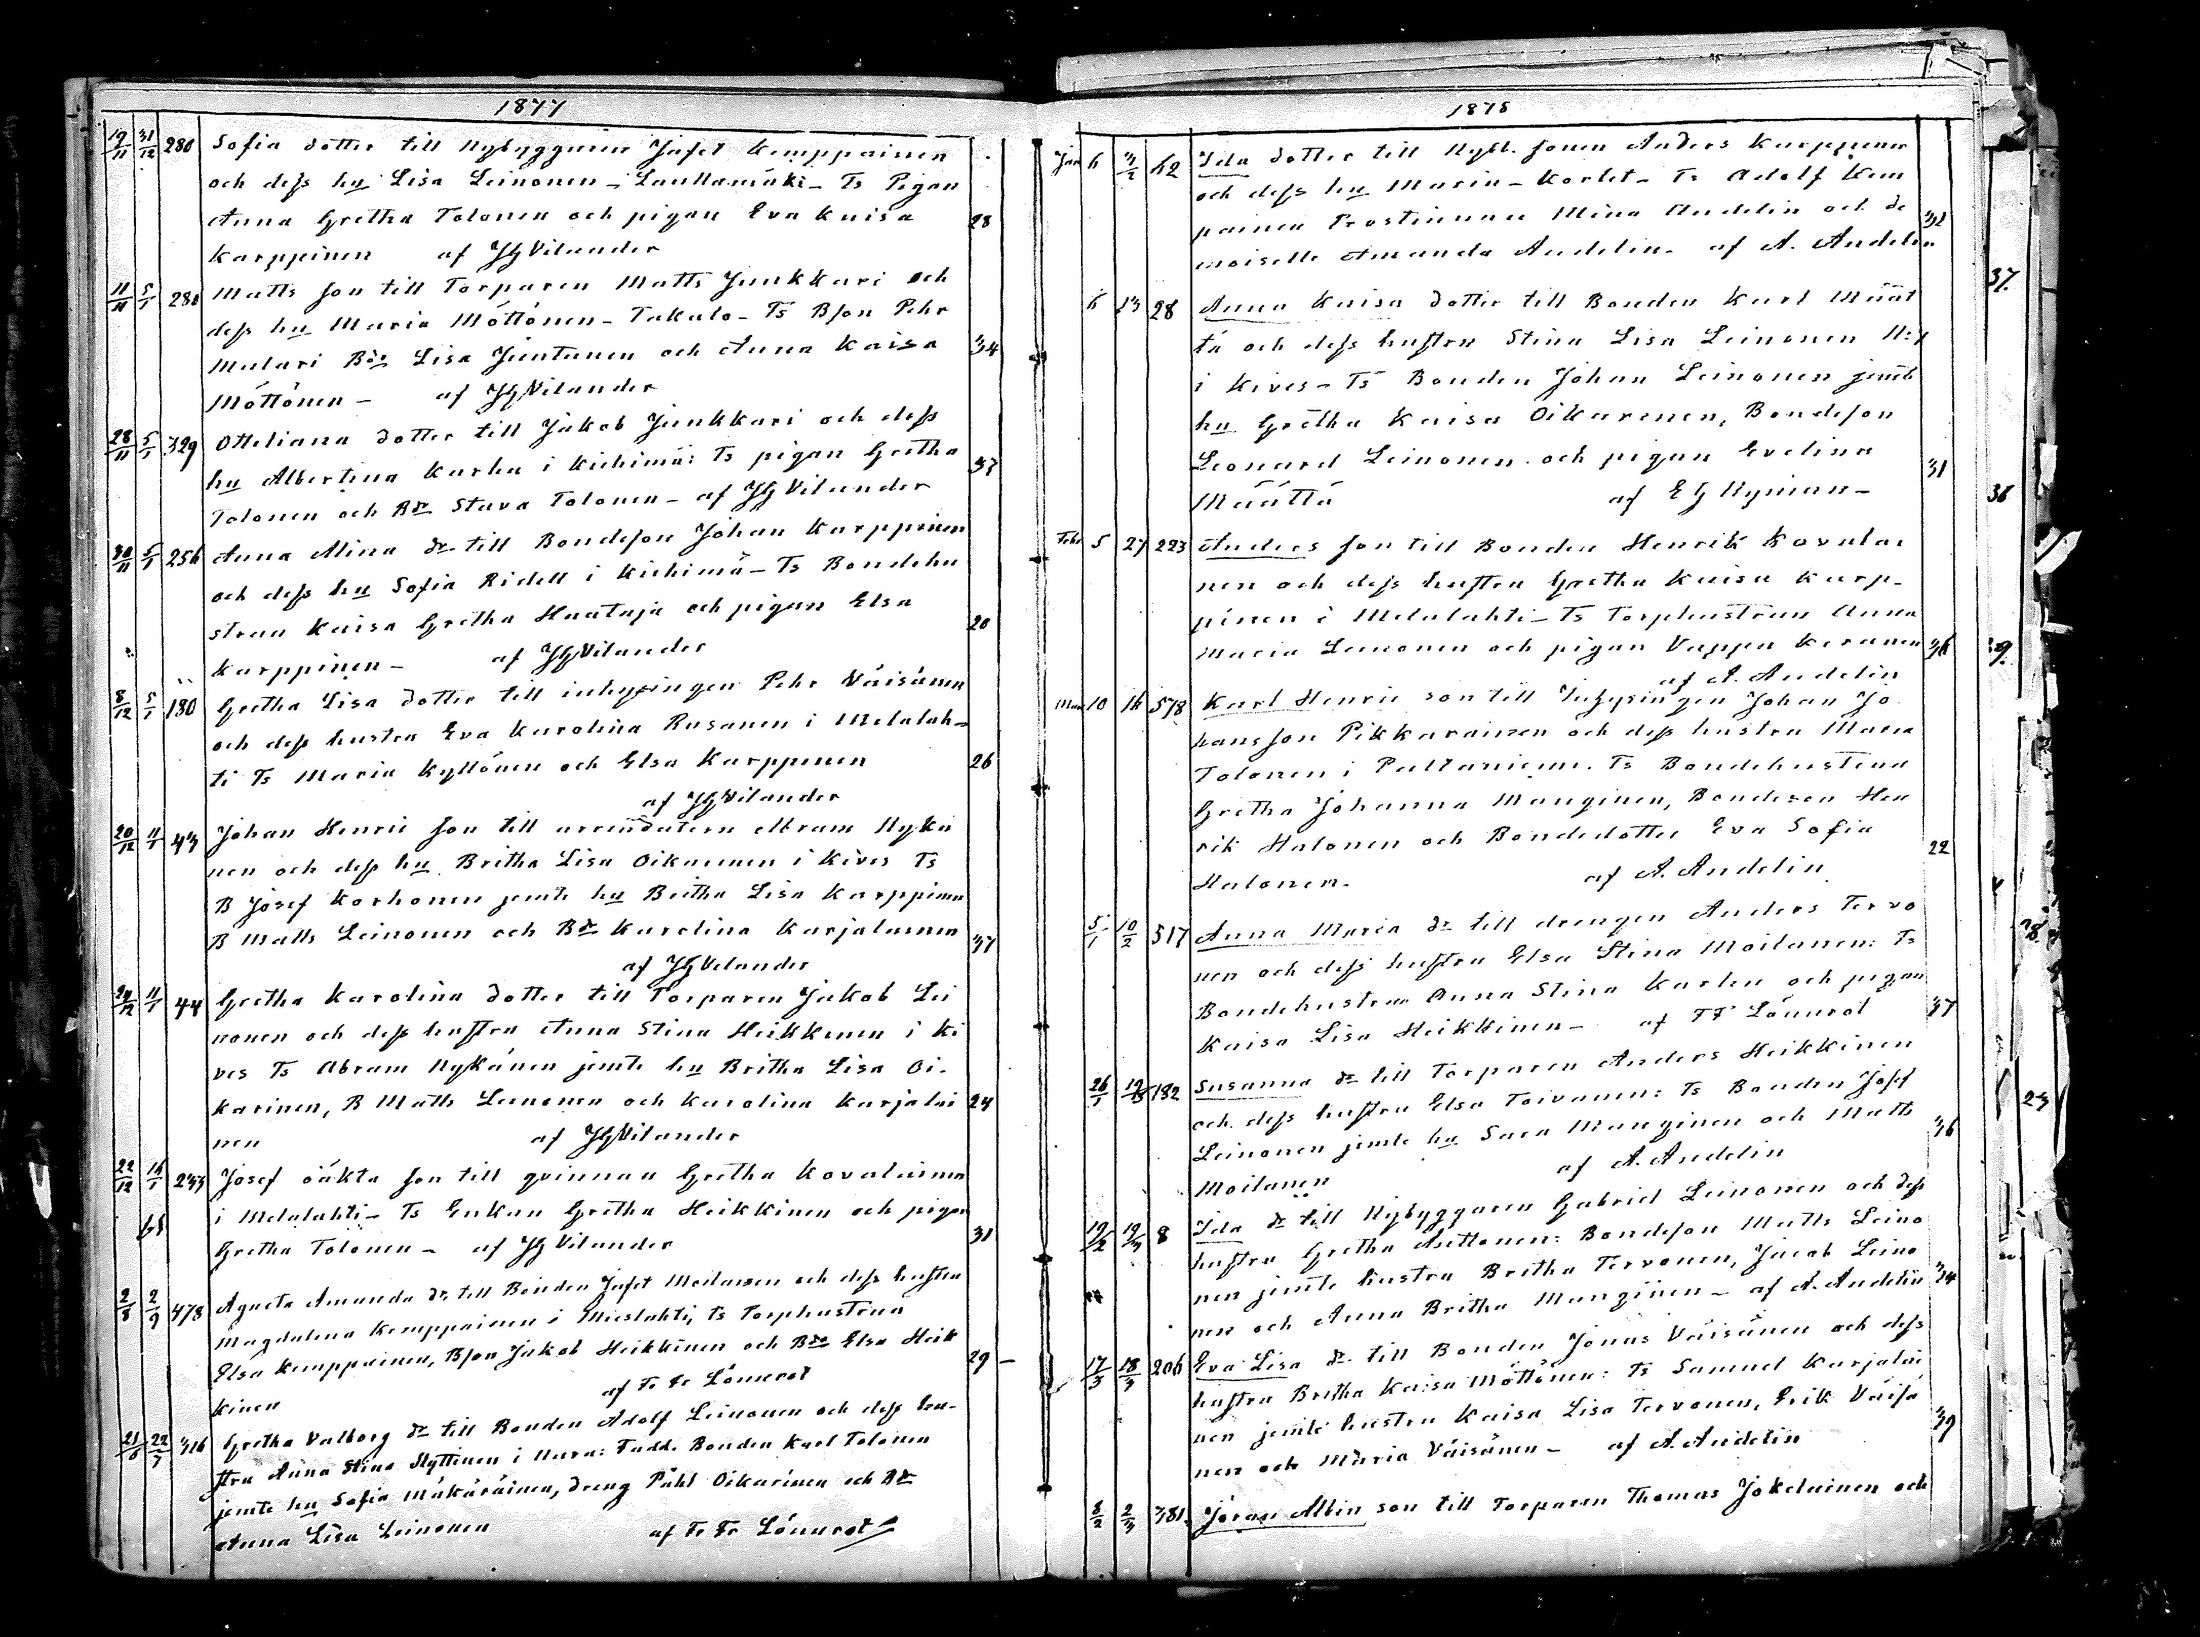 1877
19/11 31/12 280 Sofia dotter till Nybyggaren Jafet Kemppainen
och dess hu Lisa Leinonen - Lauttamäki - Ts Pigan
Anna Gretha Tolonen och pigan Eva Kaisa 28
Karppinen af JG Vilander
11/11 5/1 280 Matts son till Torparen Matts Junkkari och
dess hu Maria Möttönen - Takalo - Ts Bson Pehr
Mulari Bdr Lisa Juntunen och Anna Kaisa 34
Möttönen - af JG Vilander
28/11 5/1 329 Otteliana dotter till Jakob Junkkari och dess
hu Albertina Karhu i Kiehimä: Ts pigan Gretha 37
Tolonen och Bdr Stava Tolonen - af JG Vilander
30/11 5/1 256 Anna Alina dr till Bondeson Johan Karppinen
och dess hu Sofia Ridell i Kiehimä - Ts Bondehu
strun Kaisa Gretha Haataja och pigan Elsa 20
Karppinen - af JG Vilander
8/12 5/1 180 Gretha Lisa dotter till inhysingen Pehr Väisänen
och dess hustru Eva Karolina Rusanen i Melalah-
ti Ts Maria Kyllönen och Elsa Karppinen 26
af JG Vilander
20/12 11/1 43 Johan Henric son till arrendatorn Abram Nykä
nen och dess hu Britha Lisa Oikarinen i Kives Ts
B Josef Korhonen jemte hu Britha Lisa Karppinen
B Matts Leinonen och Bdr Karolina Karjalainen 37
af JG Vilander
11/1 44 Gretha Karolina dotter till Torparen Jakob Lei
nonen och dess hustru Anna Stina Heikkinen i Ki
ves Ts Abram Nykänen jemte hu Britha Lisa Oi-
karinen, B Matts Leinonen och Karolina Karjalai 24
nen af JG Vilander
22/12 16/1 233 Josef oäkta son till qvinnan Gretha Kovalainen
i Melalahti - Ts Enkan Gretha Heikkinen och pigan
Gretha Tolonen - af JG Vilander 31
2/8 2/9 478 Agneta Amanda dr till Bonden Jafet Moilanen och dess hustru
Magdalena Kemppainen i Mieslahti, Ts Torphustrun
Elsa Kemppainen, Bson Jakob Heikkinen och Bdr Elsa Heik 29 -
kinen af Fr Fr Lönnrot
21/6 22/7 316 Gretha Valborg dr till Bonden Adolf Leinonen och dess hu-
stru Anna Stina Hyttinen i Uura: Fadd. Bonden Karl Tolonen
jemte hu Sofia Mäkäräinen, dreng Påhl Oikarinen och Bdr
Anna Lisa Leinonen af Fr Fr Lönnrot
1878
Jan 6 3/2 62 Ida dotter till Nybb. sonen Anders Karppinen
och dess hu Maria - Kortet - Ts Adolf Kem
painen Prostinnan Mina Andelin och de 32
moiselle Amanda Andelin - af A. Andelin
37.
6 13 28 Anna Kaisa dotter till Bonden Karl Määt
tä och dess hustru Stina Lisa Leinonen N:7
i Kives - Ts Bonden Johan Leinonen jemte
hu Gretha Kaisa Oikarinen, Bondeson
Leonard Leinonen och pigan Evelina 31
Määttä af E G Nyman -
38
Febr 5 27 223 Anders son till Bonden Henrik Kovalai
nen och dess hustru Gretha Kaisa Karp-
pinen i Melalahti - Ts Torphustrun Anna
Maria Leinonen och pigan Vappu Keränen 36
af A. Andelin
Mar 10 16 578 Karl Henric son till Inhysingen Johan Jo
hansson Pikkarainen och dess hustru Maria
Tolonen i Paltaniemi. Ts Bondehustrun
Gretha Johanna Manginen, Bondeson Hen
rik Halonen och Bondedotter Eva Sofia 22
Halonen. af A. Andelin
5/1 10/2 517 Anna Maria dr till drengen Anders Tervo
nen och dess hustru Elsa Stina Moilanen: Ts
Bondehustrun Anna Stina Karlen och pigan
Kaisa Lisa Heikkinen - af F F Lönnrot 37
26/1 19/3 182 Susanna dr till Torparen Anders Heikkinen
och dess hustru Elsa Toivanen: Ts Bonden Josef
Leinonen jemte hu Sara Manginen och Matts 36
Moilanen af A. Andelin
23
19/2 19/3 8 Ida dr till Nybyggaren Gabriel Leinonen och dess
hustru Gretha Mettonen: Bondeson Matts Leino
nen jemte hustru Britha Tervonen, Jacob Leino
nen och Anna Britha Manginen - af A. Andelin 34
17/3 18/3 206 Eva Lisa dr till Bonden Jonas Väisänen och dess
hustru Britha Kaisa Möttönen: Ts Samuel Karjalai
nen jemte hustru Kaisa Lisa Tervonen, Erik Väisä
nen och Maria Väisänen - af A. Andelin 39
8/2 2/3 381. Jöran Albin son till Torparen Thomas Jokelainen och